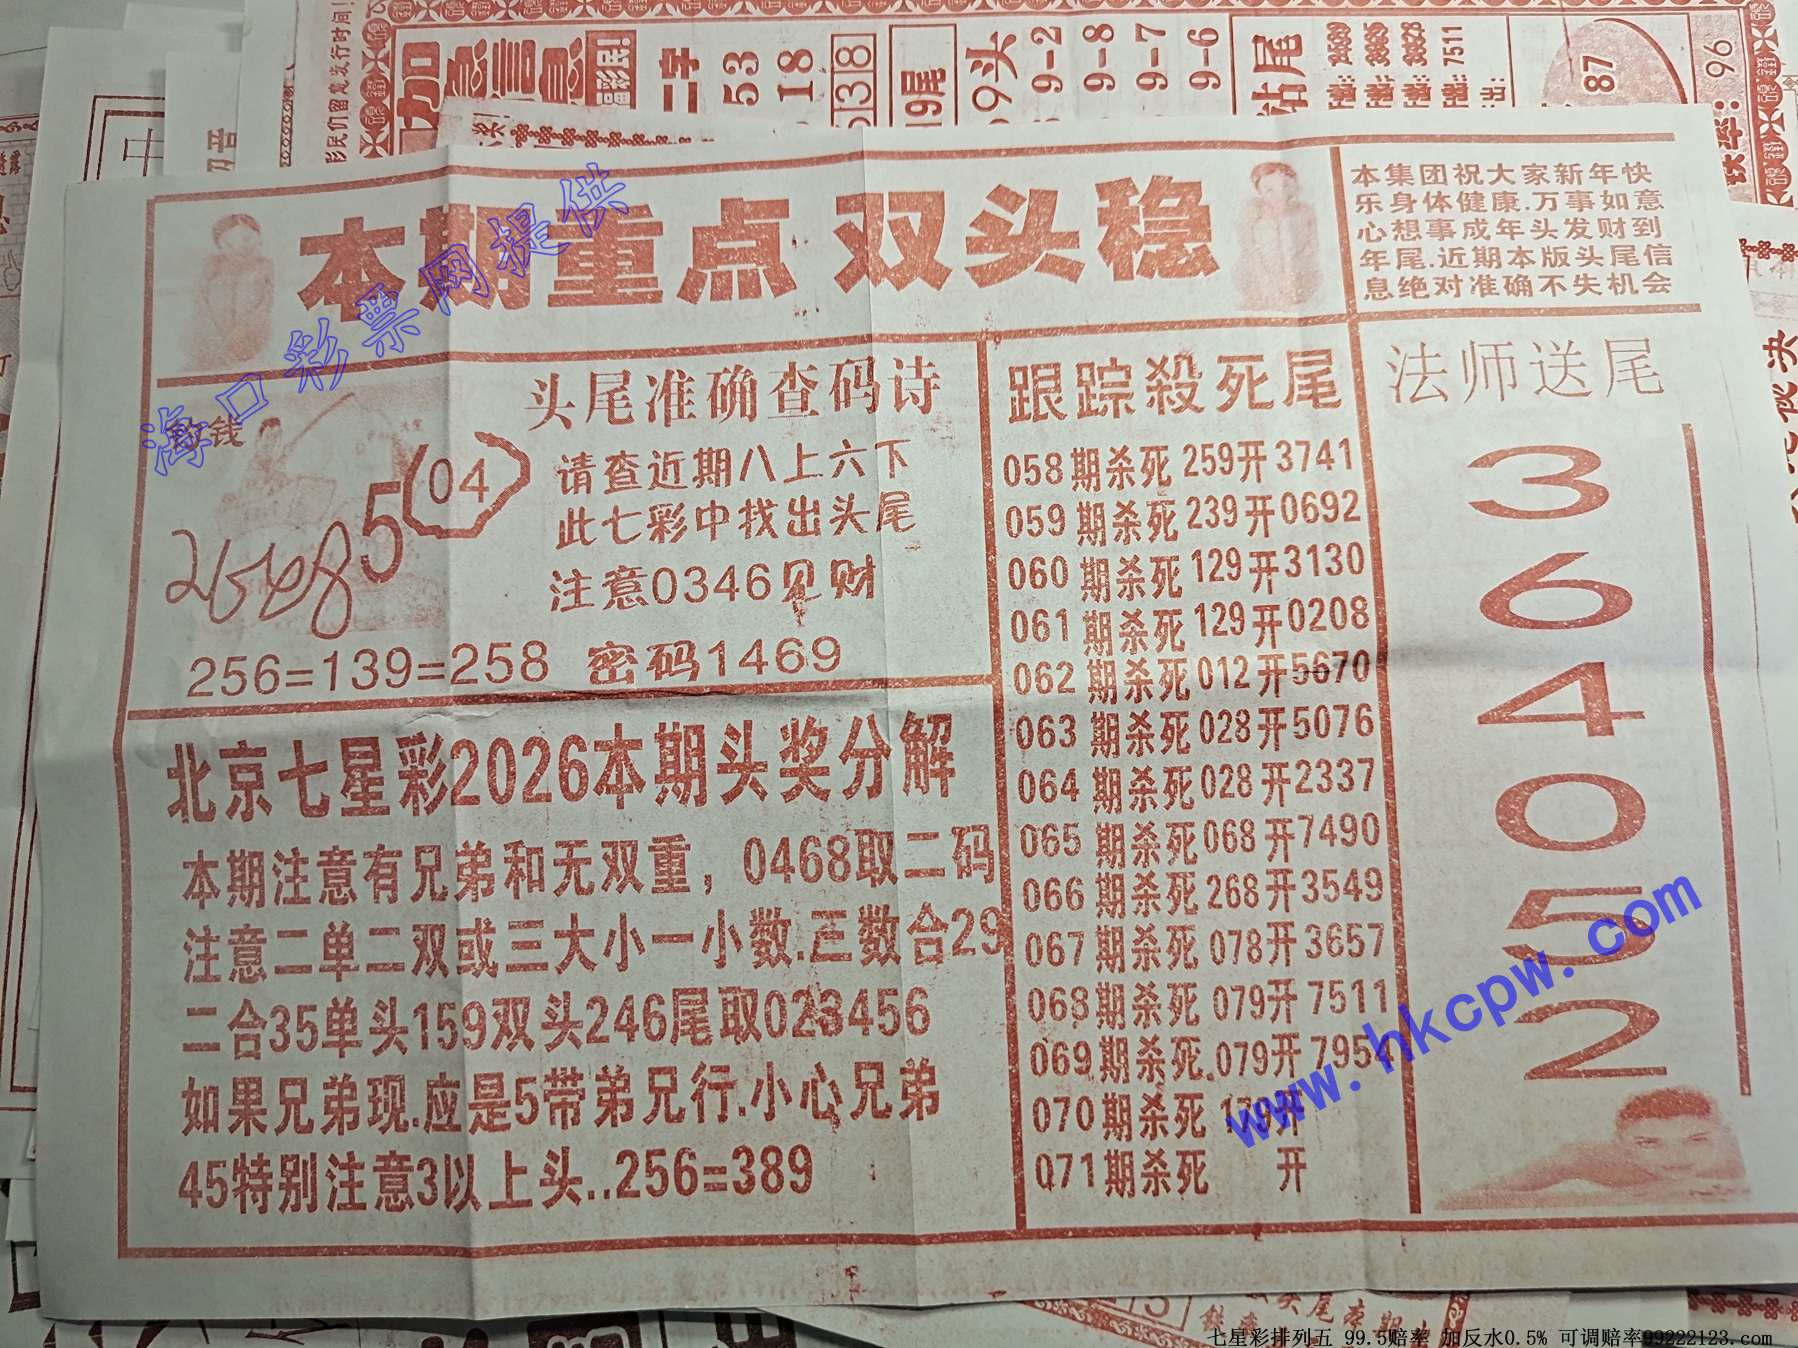 加
息
福彩民!
二字
53
18
638
19尾
69头
9-2
9-8
9-7
9-6
站尾
7511
87
96
中
本期重点 双头稳
本集团祝大家新年快
乐身体健康.万事如意
心想事成年头发财到
年尾.近期本版头尾信
息绝对准确不失机会
海口彩票网提供
钱
头尾准确查码诗
请查近期八上六下
此七彩中找出头尾
注意0346见财
5
(04)
256=139=258 密码1469
北京七星彩2026本期头奖分解
本期注意有兄弟和无双重，0468取二码
注意二单二双或三大小一小数.三数合29
二合35单头159双头246尾取023456
如果兄弟现.应是5带弟兄行.小心兄弟
45特别注意3以上头..256=389
跟踪殺死尾
058期杀死259开3741
059期杀死239开0692
060期杀死129开3130
061期杀死129开0208
062期杀死012开5670
063期杀死028开5076
064期杀死028开2337
065期杀死068开7490
066期杀死268开3549
067期杀死078开3657
068期杀死079开7511
069期杀死.079开7954
070期杀死179开
071期杀死 开
法师送尾
3
6
4
0
5
2
www.hkcpw.com
七星彩排列五 99.5赔率 加反水0.5% 可调赔率99222123.com